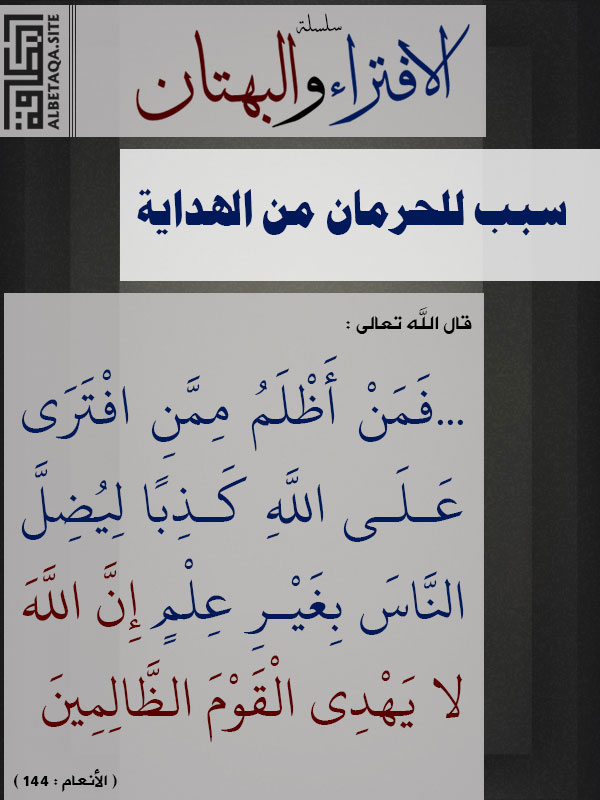 البطاقة
ALBETAQA.SITE
سلسلة
الافتراء والبهتان
سبب للحرمان من الهداية
قال اللَّه تعالى :
...فَمَنْ أَظْلَمُ مِمَّنِ افْتَرَى
عَلَى اللَّهِ كَذِبًا لِيُضِلَّ
النَّاسَ بِغَيْرِ عِلْمٍ إِنَّ اللَّهَ
لا يَهْدِى الْقَوْمَ الظَّالِمِينَ
( الأنعام : 144 )